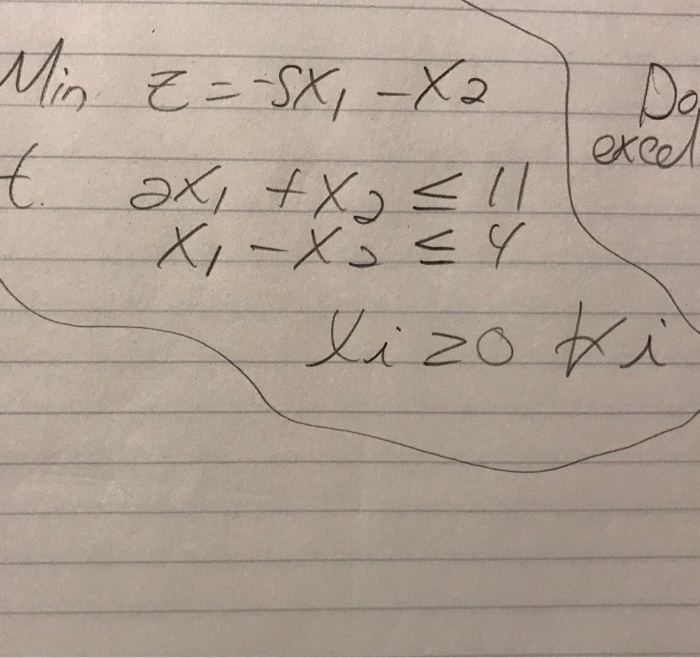 Min z = -5x₁ - x₂
t. 2x₁ + x₂ ≤ 11
x₁ - x₂ ≤ 4
xi ≥ 0 ∀ i
Do
excel